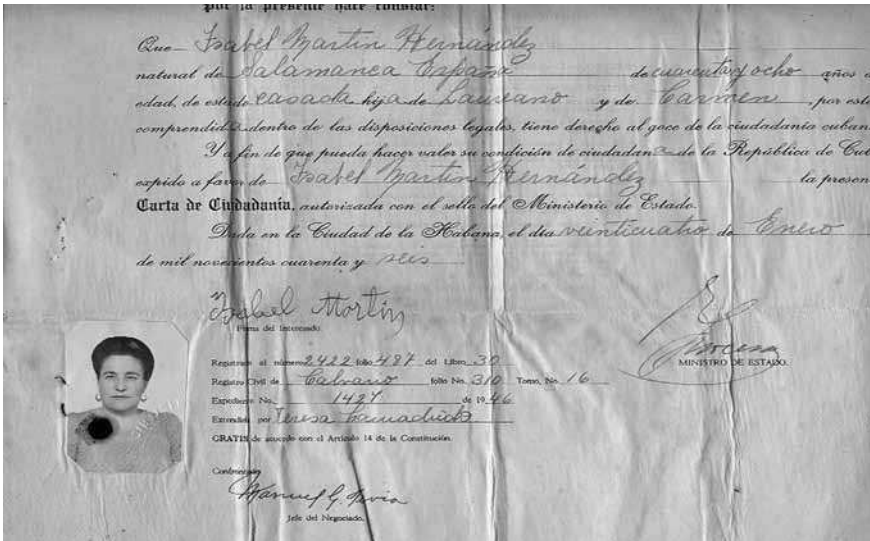 por la presente hace constar:
Que Isabel Martin Hernández
natural de Salamanca España de cuarenta y ocho años d
edad, de estado casada hija de Laureano y de Carmen, por esta
comprendida dentro de las disposiciones legales, tiene derecho al goce de la ciudadanía cuban
Y a fin de que pueda hacer valer su condición de ciudadana de la República de Cub
expido a favor de Isabel Martin Hernández la presen
Carta de Ciudadanía, autorizada con el sello del Ministerio de Estado.
Dada en la Ciudad de la Habana, el día veinticuatro de Enero
de mil novecientos cuarenta y seis
Isabel Martin
Firma del Interesado
MINISTRO DE ESTADO.
Registrada al número 2422 folio 487 del Libro 30
Registro Civil de Calvario folio No. 310 Tomo, No. 16
Expediente No. 1427 de 1946
Extendida por Teresa
GRATIS de acuerdo con el Artículo 14 de la Constitución.
Manuel G.
Jefe del Negociado.